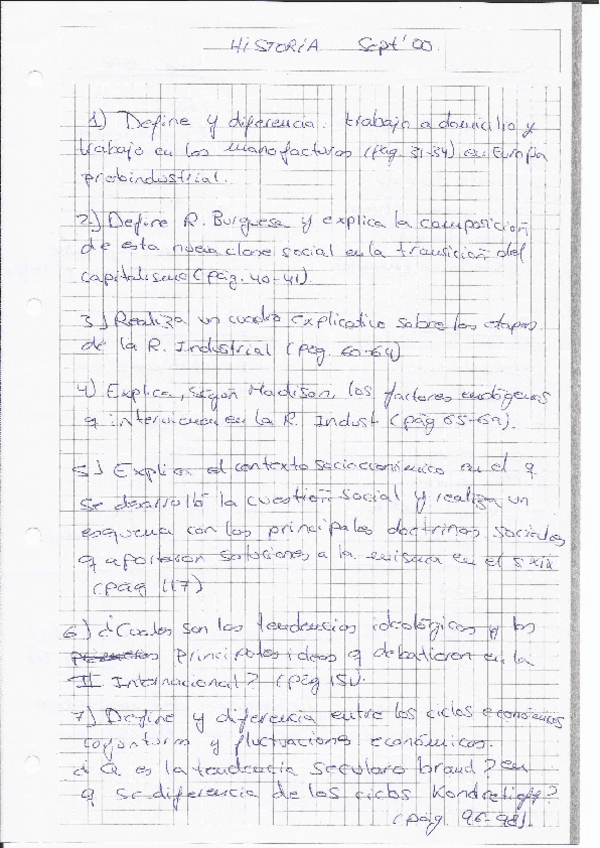 HISTORIA Sept' 00
1) Define y diferencia: trabajo a domicilio y
trabajo en los manofacturas (pág. 31-34) en Europa
probindustrial.
2.) Define R. Burguesa y explica la composición
de esta nueva clase social en la transición del
capitalismo (pág. 40-41)
3.) Realiza un cuadro explicativo sobre las etapas
de la R. Industrial (pág. 60-64)
4) Explica, según Madison, los factores endógenos
q intervienen en la R. Indust (pág 65-69).
5) Explica el contexto socioeconómico en el q
se desarrolló la cuestión social y realiza un
esquema con las principales doctrinas sociales
q aportaron soluciones a la misma en el s XIX
(pág 117)
6) ¿Cuáles son las tendencias ideológicas y las
principales ideas q debatieron en la
II Internacional? (pág 151).
7) Define y diferencia entre los ciclos económicos
coyuntura y fluctuaciones económicas.
¿ Q es la tendencia secular o ? en
q se diferencia de los ciclos Kondratieff?
(pág. 96-98).